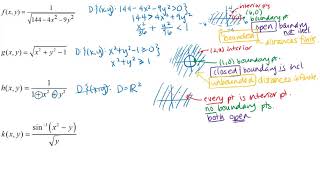 f(x, y) = 1/√(144 − 4x² − 9y²)
D:{(x,y): 144-4x²-9y²>0}
144 > 4x²+9y²
x²/36 + y²/16 < 1
interior pt.
(6,0)
boundary pt.
open
boundary not incl
bounded distances finite
g(x, y) = √(x² + y² − 1)
D:{(x,y): x²+y²-1≥0}
x²+y² ≥ 1
(2,2) interior
(1,0) boundary pt.
closed boundary is incl
unbounded distances infinite.
h(x, y) = 1/(1 + x² + y²)
D:{(x,y): D=ℝ²
every pt is interior pt.
no boundary pts.
both open
k(x, y) = sin⁻¹(x² − y)/√y